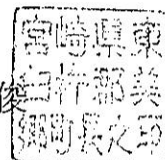 俊
宮崎県東
臼杵郡美
郷町長之印